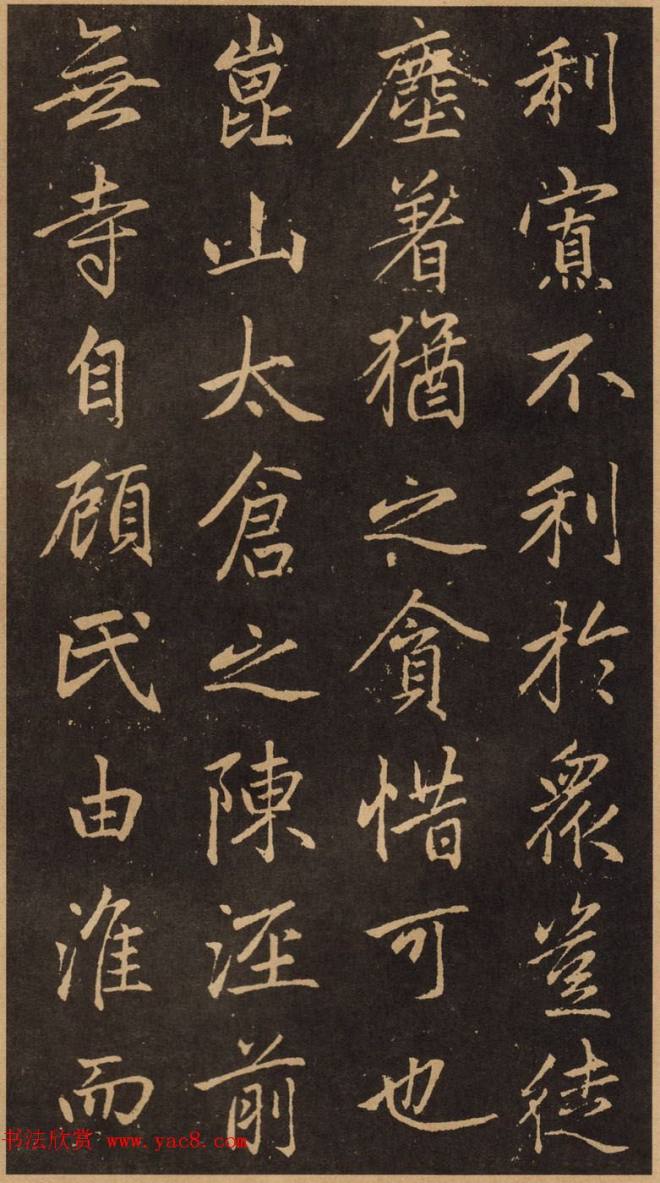 利寘不利於眾豈徒
塵著猶之貪惜可也
崑山太倉之陳泾前
無寺自顧氏由淮而
书法欣赏 www.yac8.com